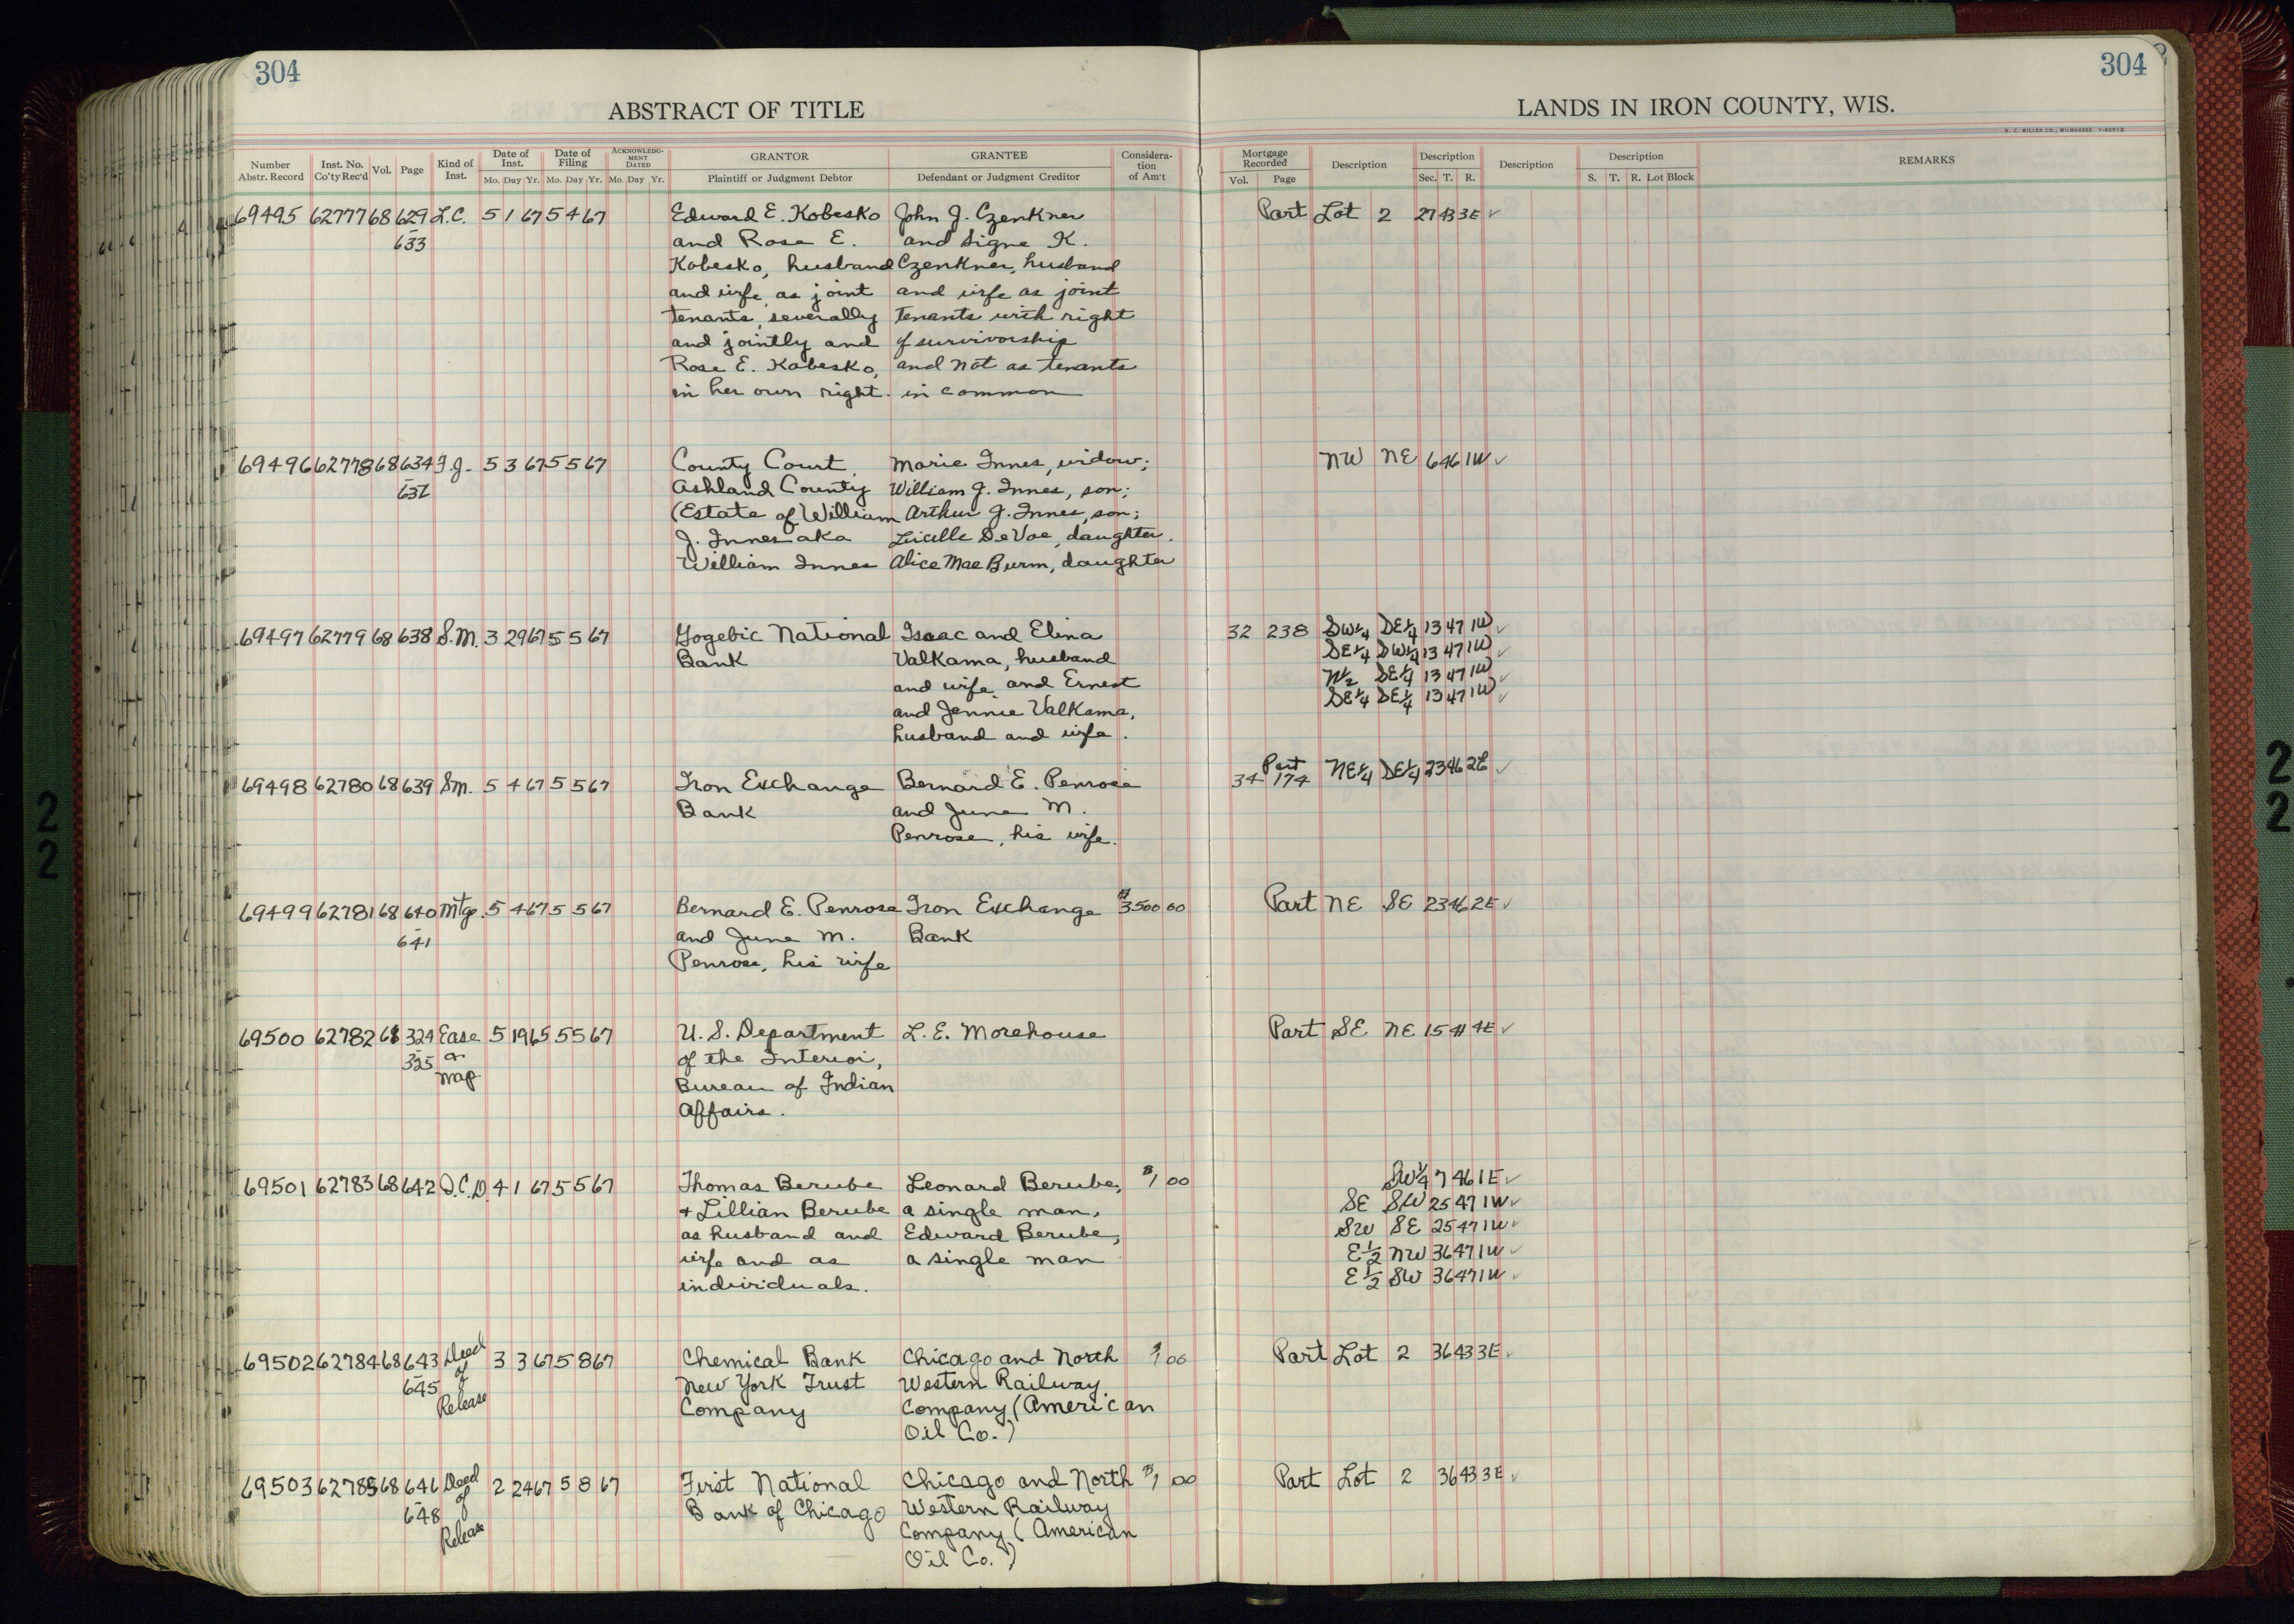 304
304
ABSTRACT OF TITLE
LANDS IN IRON COUNTY, WIS.
H. C. MILLER CO., MILWAUKEE
Number Abstr. Record
Inst. No. Co'ty Rec'd
Vol.
Page
Kind of Inst.
Date of Inst.
Mo. Day Yr.
Date of Filing
Mo. Day Yr.
ACKNOWLEDG-MENT DATED
Mo. Day Yr.
GRANTOR
Plaintiff or Judgment Debtor
GRANTEE
Defendant or Judgment Creditor
Considera-tion of Am't
Mortgage Recorded
Vol. Page
Description
Description
Sec. T. R.
Description
Description
S. T. R. Lot Block
REMARKS
69495 62777 68 629 L.C. 5 1 67 5 4 67 Edward E. Kobesko John J. Czenkner Part Lot 2 27 43 3E ✓
- 633 and Rose E. and Signe K.
Kobesko, husband Czenkner, husband
and wife, as joint and wife as joint
tenants, severally tenants with right
and jointly and of survivorship
Rose E. Kobesko, and not as tenants
in her own right. in common
69496 62778 68 634 F.J. 5 3 67 5 5 67 County Court, Marie Innes, widow; NW NE 6 46 1W ✓
- 637 Ashland County William J. Innes, son;
(Estate of William Arthur J. Innes, son;
J. Innes aka Lucille DeVoe, daughter.
William Innes Alice Mae Burm, daughter
69497 62779 68 638 S.M. 3 29 67 5 5 67 Gogebic National Isaac and Elina 32 238 SW¼ SE¼ 13 47 1W ✓
Bank Valkama, husband SE¼ SW¼ 13 47 1W ✓
and wife, and Ernest N½ SE¼ 13 47 1W ✓
and Jennie Valkama, SE¼ SE¼ 13 47 1W ✓
husband and wife.
69498 62780 68 639 S.M. 5 4 67 5 5 67 Iron Exchange Bernard E. Penrose 34 174 Part NE¼ SE¼ 23 46 2E ✓
Bank and June M.
Penrose, his wife.
69499 62781 68 640 Mtge. 5 4 67 5 5 67 Bernard E. Penrose Iron Exchange $3500 00 Part NE SE 23 46 2E ✓
- 641 and June M. Bank
Penrose, his wife
69500 62782 68 324 Ease 5 19 65 5 5 67 U. S. Department L. E. Morehouse Part SE NE 15 41 4E ✓
- 325 on of the Interior,
Map Bureau of Indian
Affairs.
69501 62783 68 642 Q.C.D. 4 1 67 5 5 67 Thomas Berube Leonard Berube, $1 00 SW¼ 7 46 1E ✓
+ Lillian Berube a single man, SE SW 25 47 1W ✓
as husband and Edward Berube, SW SE 25 47 1W ✓
wife and as a single man E½ NW 36 47 1W ✓
individuals. E½ SW 36 47 1W ✓
69502 62784 68 643 Deed 3 3 67 5 8 67 Chemical Bank Chicago and North $1 00 Part Lot 2 36 43 3E ✓
- 645 of New York Trust Western Railway
Release Company Company (American
Oil Co.)
69503 62785 68 646 Deed 2 24 67 5 8 67 First National Chicago and North $1 00 Part Lot 2 36 43 3E ✓
- 648 of Bank of Chicago Western Railway
Release Company (American
Oil Co.)
2
2
2
2